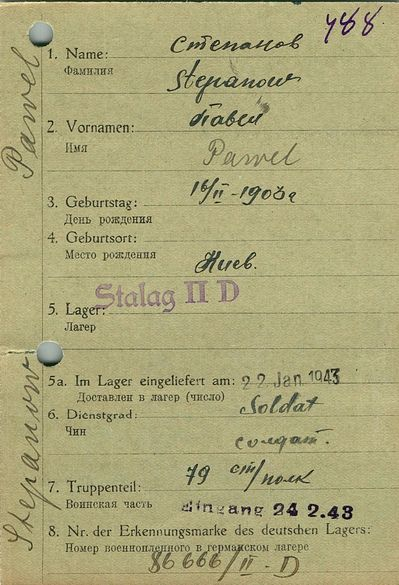 788
Pawel
Stepanow
1. Name: Степанов
Фамилия
Stepanow
2. Vornamen: Павел
Имя
Pawel
3. Geburtstag: 16/II-1903г
День рождения
4. Geburtsort:
Место рождения
Киев.
Stalag II D
5. Lager:
Лагерь
5a. Im Lager eingeliefert am: 22. Jan. 1943
Доставлен в лагерь (число)
6. Dienstgrad: Soldat
Чин
солдат.
79 ст/полк
7. Truppenteil:
Воинская часть
Eingang 24.2.43
8. Nr. der Erkennungsmarke des deutschen Lagers:
Номер военнопленного в германском лагере
86666/II-D